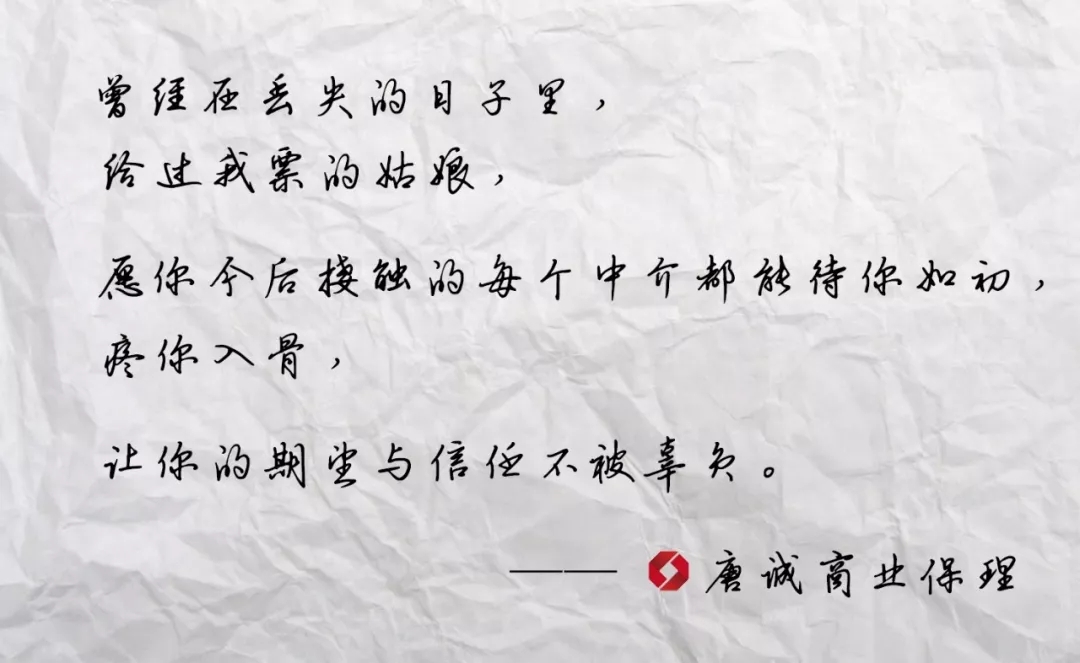 曾经在丢失的日子里，
给过我票的姑娘，
愿你今后接触的每个中介都能待你如初，
疼你入骨，
让你的期望与信任不被辜负。
—— 唐诚商业保理